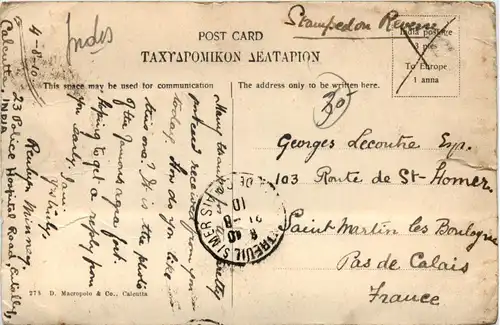 Indes
Stamped on Reverse
POST CARD
ΤΑΧΥΔΡΟΜΙΚΟΝ ΔΕΛΤΑΡΙΟΝ
India postage
3 pies
To Europe
1 anna
This space may be used for communication
The address only to be written here.
4-8-10.
Calcutta, INDIA
23 Police Hospital Road, Entally,
Many thanks for a
postcard received from you
today. How do you like
this one? It is the photo
of the famous agra fort.
Hoping to get a reply from
you early, I am
Yours
Georges Lecoutre Exp.
103 Route de St-Homer
Saint Martin les Boulogne
Pas de Calais
France
278 D. Macropolo & Co., Calcutta